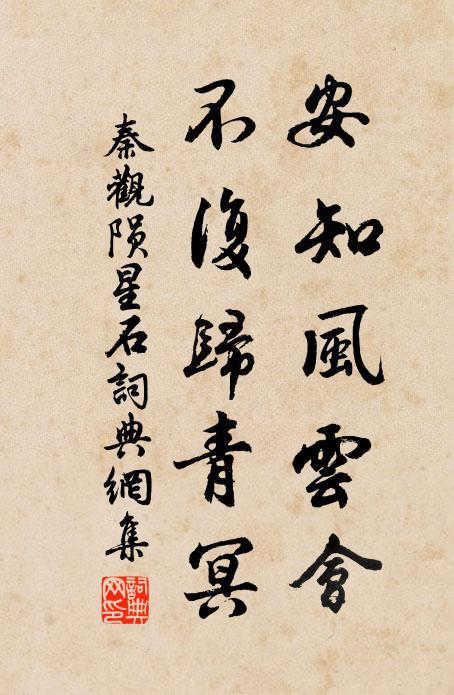 安知風雲會
不復歸青冥
秦觀陨星石詞典網集
詞典網印